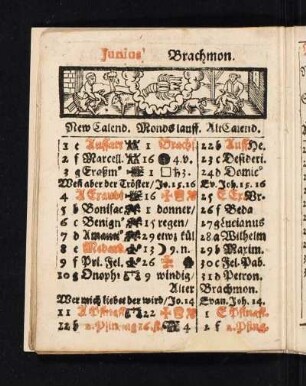 Junius Brachmon.
New Calend. Mondslauff. Alt Calend.
1 e Auffart 1 Brachs 22 b
2 f Marcell. 16 4.v. 23 c Desideri.
3 g Erasm⁹ 1 □ ♄ 3. 24 d Domic⁹
Weñ aber der Tröster/ Jo. 15.16 Ev. Joh. 15.16
4 A Exaudi 16 25 E Ex.
5 b Bonifac. 1 donner/ 26 f Beda
6 c Benign⁹ 15 regen/ 27 g Lucianus
7 d 29 etwz kül 28 a Wilhelm
8 13 ☽ 9. n. 29 b Maxim.
9 f Pri. Fel. 26 30 c Fel. Pab.
10 g Onoph: 9 windig/ 31 d Petron.
Alter Brachmon.
Wer mich liebet der wird/ Jo. 14 Evan. Joh. 14.
11 A Pfingst 22 1 E Pfingst.
12 b 4 2 f 2. Pfing.